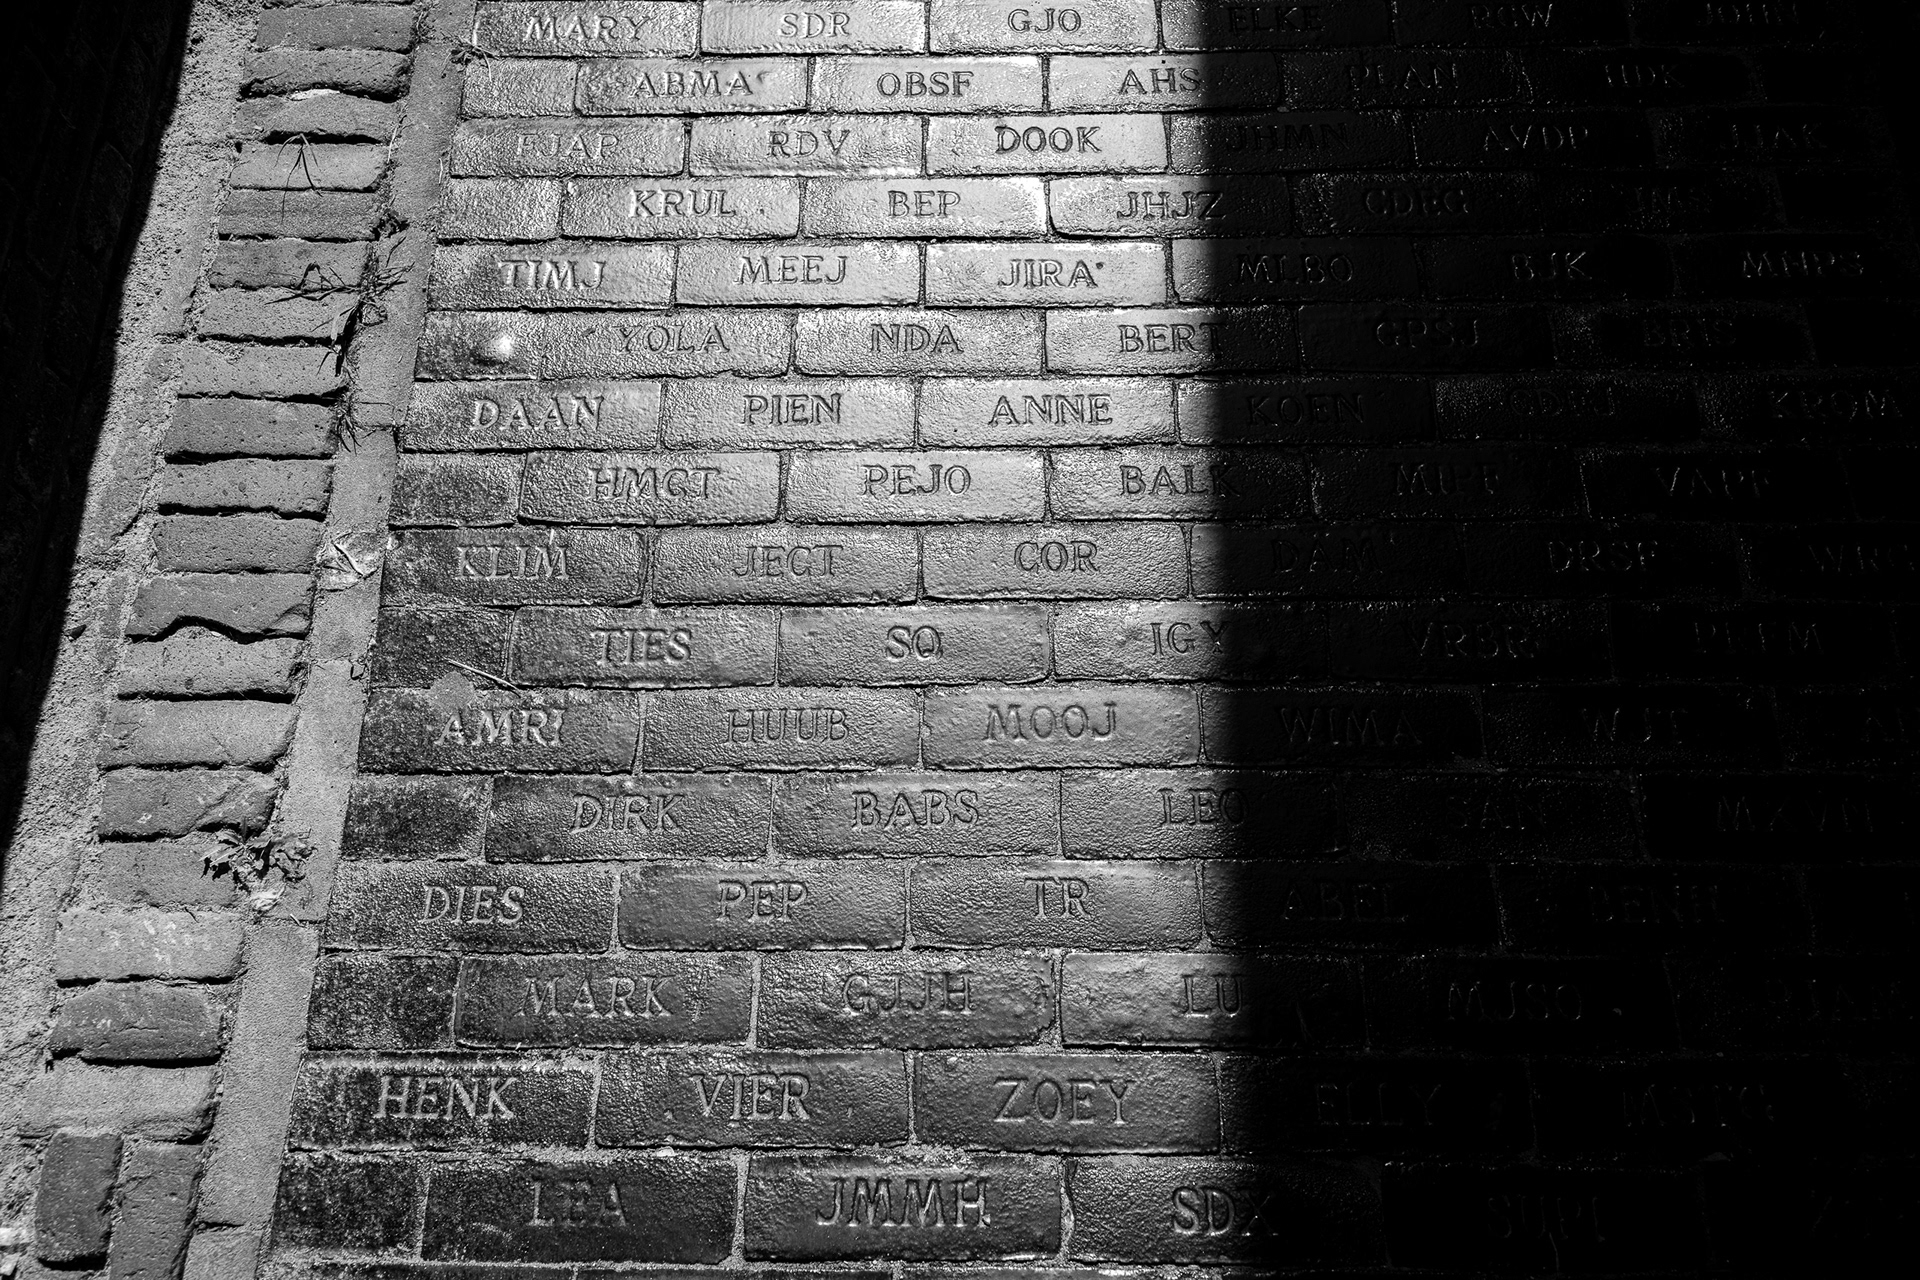 MARY SDR GJO ELKE RGW JOHN
ABMA OBSF AHS PLAN HDK
FJAP RDV DOOK JHMN AVDP JJAK
KRUL BEP JHJZ CDEG
TIMJ MEEJ JIRA MLBO BJK MHPS
YOLA NDA BERT GPSJ
DAAN PIEN ANNE KOEN KROM
HMGT PEJO BALK
KLIM JECT COR DAM DRSF
TIES SQ IGY VRBR
AMRI HUUB MOOJ WIMA
DIRK BABS LEO SAN
DIES PEP TR ABEL
MARK GJJH LU MJSO
HENK VIER ZOEY ELLY
LEA JMMH SDX